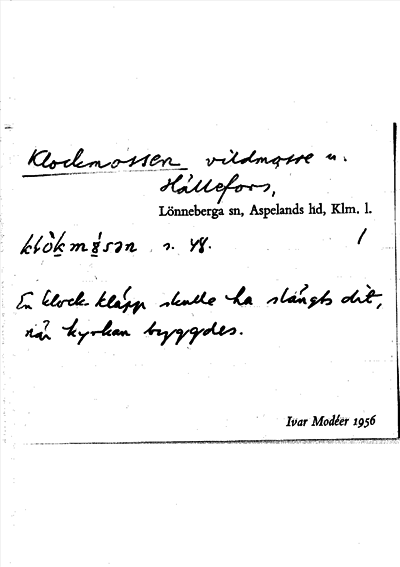 Klockmossen vildmosse u.
Hällefors,
Lönneberga sn, Aspelands hd, Klm. l.
klòkmåsən s. 48. /
En klock-kläpp skulle ha slängts dit,
när kyrkan byggdes.
Ivar Modéer 1956